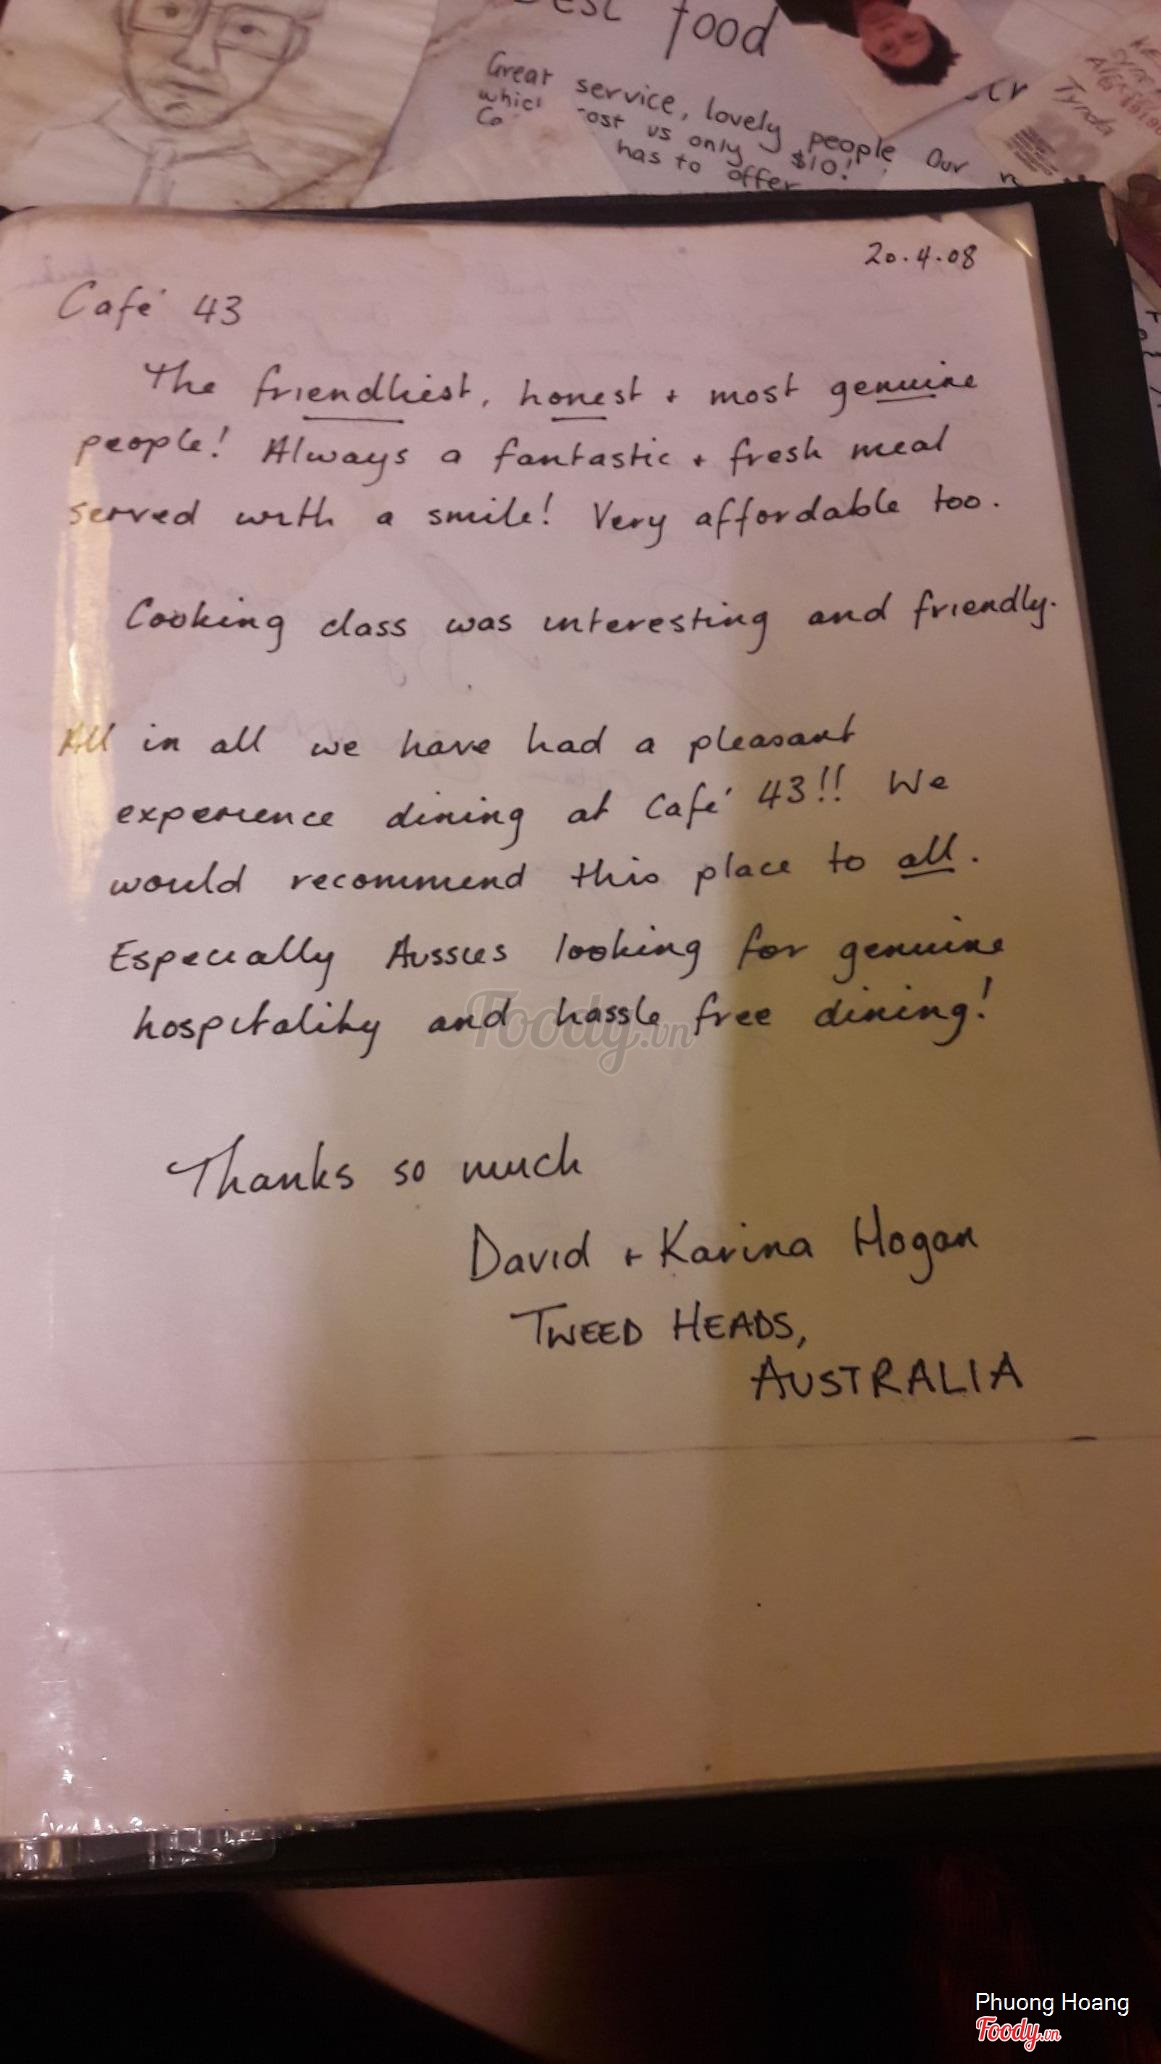 food
Great service, lovely people Our
us only $10!
has to offer
Tynda
20.4.08
Café 43
The friendliest, honest + most genuine
people! Always a fantastic + fresh meal
served with a smile! Very affordable too.
Cooking class was interesting and friendly.
All in all we have had a pleasant
experience dining at Café 43!! We
would recommend this place to all.
Especially Aussies looking for genuine
hospitality and hassle free dining!
Foody.vn
Thanks so much
David + Karina Hogan
TWEED HEADS,
AUSTRALIA
Phuong Hoang
Foody.vn